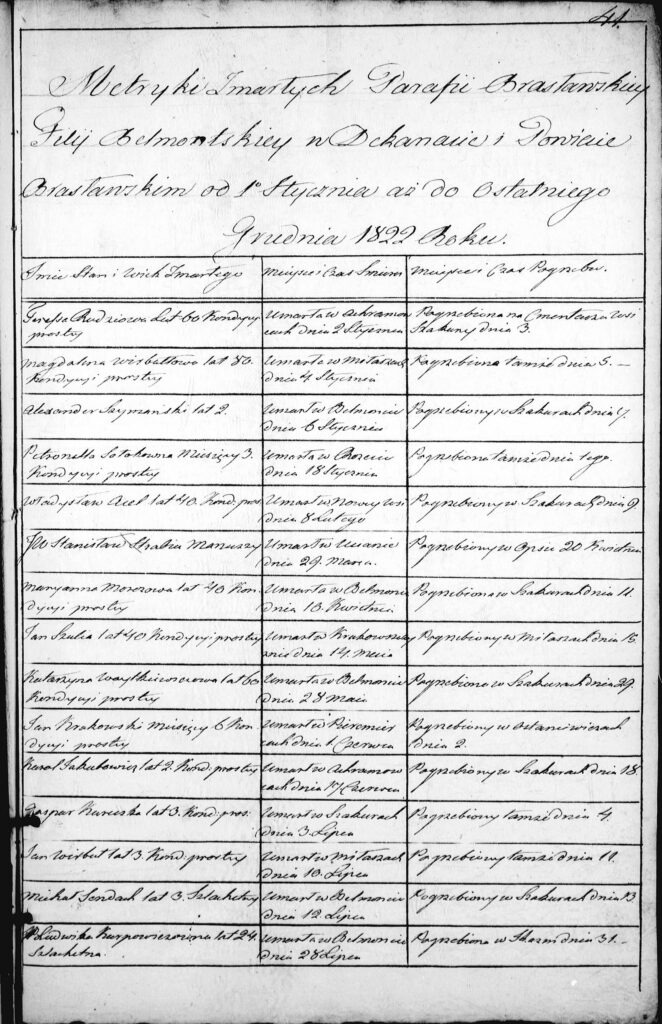 41.
Metryki Zmartych Parafii Brasławskiey
Filij Belmontskiey w Dekanacie i Powiecie
Brasławskim od 1º Stycznia aż do Ostatniego
Grudnia 1822 Roku.
Imie Stan i Wiek Zmartego
Mieysce i Czas Śmierci
Mieysce i Czas Pogrzebu.
Teressa Rudziowa Lat 60 Kondycyi
prostey
Umarła w Achramow
cach dnia 2 Stycznia
Pogrzebiona na Cmentarzu wsi
Szakury dnia 3.
Magdalena Wirbułłowa lat 80.
Kondycyi prostey
Umarła w Miłaszach
dnia 4. Stycznia
Pogrzebiona tamże dnia 5.
Alexander Szymański lat 2.
Umarł w Belmoncie
dnia 6 Stycznia
Pogrzebiony w Szakurach dnia 7.
Petronella Miesięcy 3.
Kondycyi prostey
Umarła w
dnia 18 Stycznia
Pogrzebiona tamże dnia tego.
Władysław Acel lat 40. Kond: pros
Umarł w Nowey wsi
dnia 8 Lutego
Pogrzebiony w Szakurach dnia 9
JW Stanisław Hrabia Manuzzy
Umarł w
dnia 29. Marca.
Pogrzebiony w Opsie 20 Kwietnia
Maryanna Morozowa lat 40 Kon
dycyi prostey
Umarła w Belmoncie
dnia 10. Kwietnia
Pogrzebiona w Szakurach dnia 11.
Jan Szulia lat 40 Kondycyi prostey
Umarł w
dnia 14. Maia
Pogrzebiony w Miłaszach dnia 15
Katarzyna Woytkiewiczowa lat 60
Kondycyi prostey
Umarła w Belmoncie
dnia 28 Maia
Pogrzebiona w Szakurach dnia 29.
Jan Krakowski Miesięcy 6 Kon
dycyi prostey
Umarł w
cach dnia 1 Czerwca
Pogrzebiony w
dnia 2.
Karol Jakubowicz lat 2. Kond: prostey
Umarł w Achramow
cach dnia 17 Czerwca
Pogrzebiony w Szakurach dnia 18
Kaspar lat 3. Kond: pros:
Umarł w Szakurach
dnia 3 Lipca
Pogrzebiony tamże dnia 4.
Jan Wirbuł lat 3. Kond: prostey
Umarł w Miłaszach
dnia 10. Lipca
Pogrzebiony tamże dnia 11.
Michał Sendach lat 3. Szlachetny
Umarł w Belmoncie
dnia 12 Lipca
Pogrzebiony w Szakurach dnia 13
Ludwika Karpowiczówna lat 24.
Szlachetna.
Umarła w Belmoncie
dnia 28 Lipca
Pogrzebiona w dnia 31.